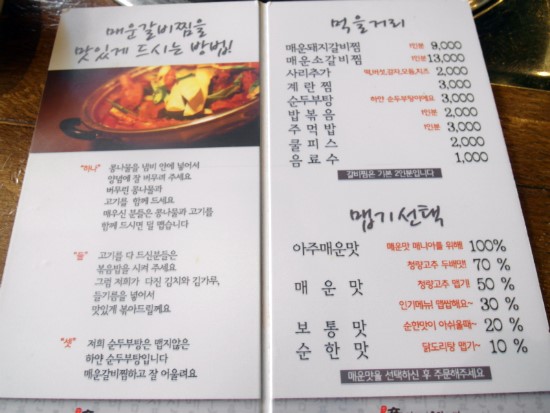 매운갈비찜을
맛있게 드시는 방법!
"하나" 콩나물을 냄비 안에 넣어서
양념에 잘 버무려 주세요
버무린 콩나물과
고기를 함께 드세요
매우신 분들은 콩나물과 고기를
함께 드시면 덜 맵습니다
"둘" 고기를 다 드신분들은
볶음밥을 시켜 주세요
그럼 저희가 다진 김치와 김가루,
들기름을 넣어서
맛있게 볶아드릴께요
"셋" 저희 순두부탕은 맵지않은
하얀 순두부탕입니다
매운갈비찜하고 잘 어울려요
먹을거리
매운돼지갈비찜 1인분 9,000
매운소갈비찜 1인분 13,000
사리추가 떡,버섯,감자,모듬,치즈 2,000
계란찜 3,000
순두부탕 하얀 순두부탕이에요 3,000
밥볶음 1인분 2,000
주먹밥 1인분 3,000
쿨피스 2,000
음료수 1,000
갈비찜은 기본 2인분입니다
맵기선택
아주매운맛 매운맛 매니아를 위해 100%
청량고추 두배맛! 70 %
매운맛 청량고추 맵기! 50 %
인기메뉴! 맵쌉해요~ 30 %
보통맛 순한맛이 아쉬울때~ 20 %
순한맛 닭도리탕 맵기~ 10 %
매운맛을 선택하신 후 주문해주세요